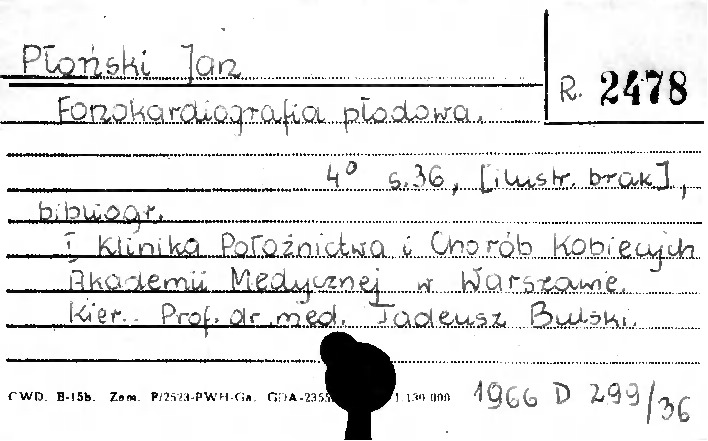 Płoński Jan
R. 2478
Fonokardiografia płodowa.
4° s.36, [ilustr. brak],
bibliogr.
I Klinika Położnictwa i Chorób Kobiecych
Akademii Medycznej w Warszawie.
Kier. Prof. dr med. Tadeusz Bulski.
CWD. B-15b. Zam. P/2523-PWH-Ga. GDA-2355
1966 D 299/36